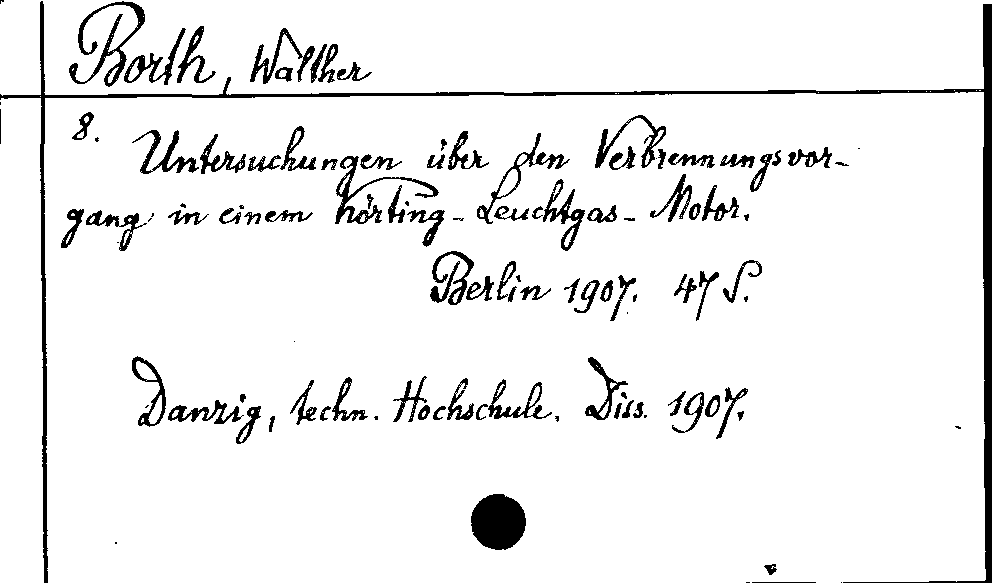 Borth, Walther
8. Untersuchungen über den Verbrennungsvor-
gang in einem Körting-Leuchtgas-Motor.
Berlin 1907. 47 S.
Danzig, techn. Hochschule. Diss. 1907.